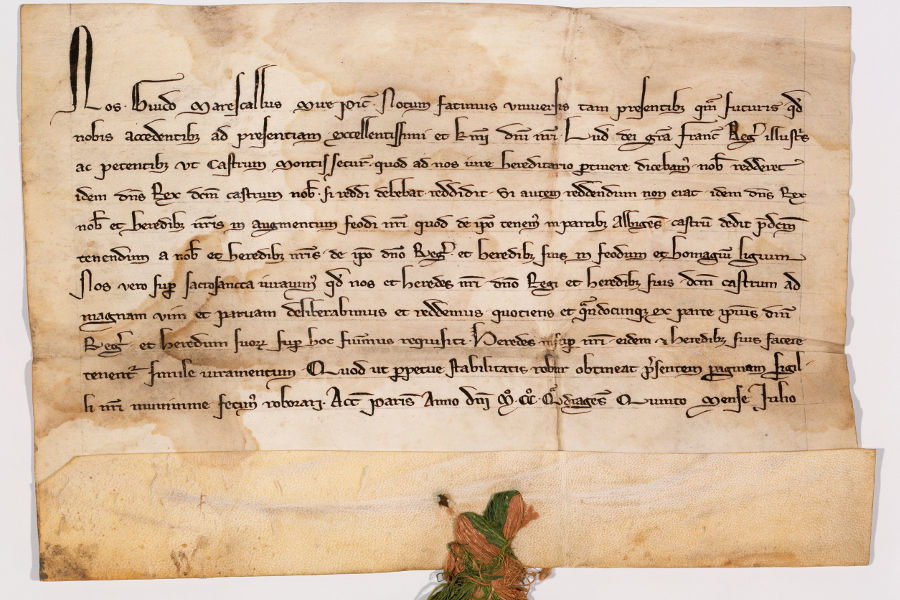 Nos. Guido Marescallus Mirepoic̄. Notum facimus universis tam presentibꝫ qm̄ futuris qd̄
nobis accedentibꝫ ad presentiam excellentissimi et k̄mi dn̄i nr̄i Lud dei grā franc̄ Reḡ illustrs
ac petentibꝫ ut Castrum Montissecuri quod ad nos iure hereditario ꝑtinere dicebam nob̄ redderet
idem dn̄s Rex dc̄m castrum nob̄. si reddi debebat reddidit. Si autem reddendum non erat idem dn̄s Rex
nob̄ et heredibꝫ nr̄is in augmentum feodi nr̄i quod de ip̄o tenem in partibꝫ Albigen̄ castrū dedit p̄dc̄m
tenendum a nob̄ et heredibꝫ nr̄is. de ip̄o dn̄o Reḡ. et heredibꝫ suis in feodum et homagiū ligium
Nos vero sup̄ sacrosancta iuravim qd̄ nos et heredes nr̄i dn̄o Regi et heredibꝫ suis dc̄m castrum ad
magnam vim et parvam deliberabimus et reddemus quotiens et qn̄docunqꝫ ex parte ipius dn̄i
Reḡ. et heredum suoꝝ sup̄ hoc fuim̄us requisiti. Heredes nr̄i eidem et heredibꝫ suis facere
tenent simile iuramentum. Quod ut ꝑpetue stabilitatis robur obtineat p̄sentem paginam sigil-
li nr̄i munimine fecim roborari. Act̄ Parisi Anno dn̄i M̊. CC̊. Qͣdrages̄ Quinto Mense Julio